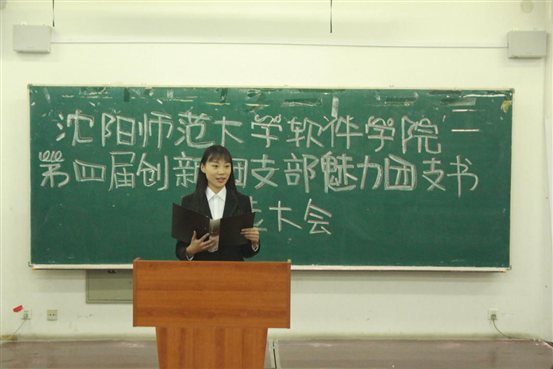 沈阳师范大学软件学院
第四届创新团支部魅力团支书
大会